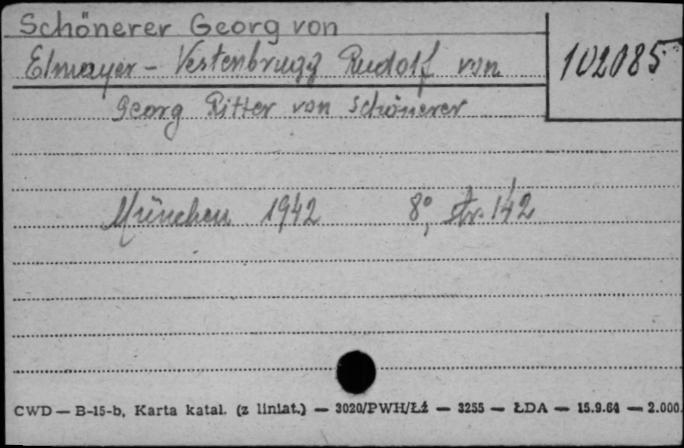 Schönerer Georg von
Elmayer - Vestenbrugg Rudolf von
102085
Georg Ritter von Schönerer
München 1942 8°, str. 142
CWD — B-15-b, Karta katal. (z liniat.) — 3020/PWH/Łź — 3255 — ŁDA — 15.9.64 — 2.000.